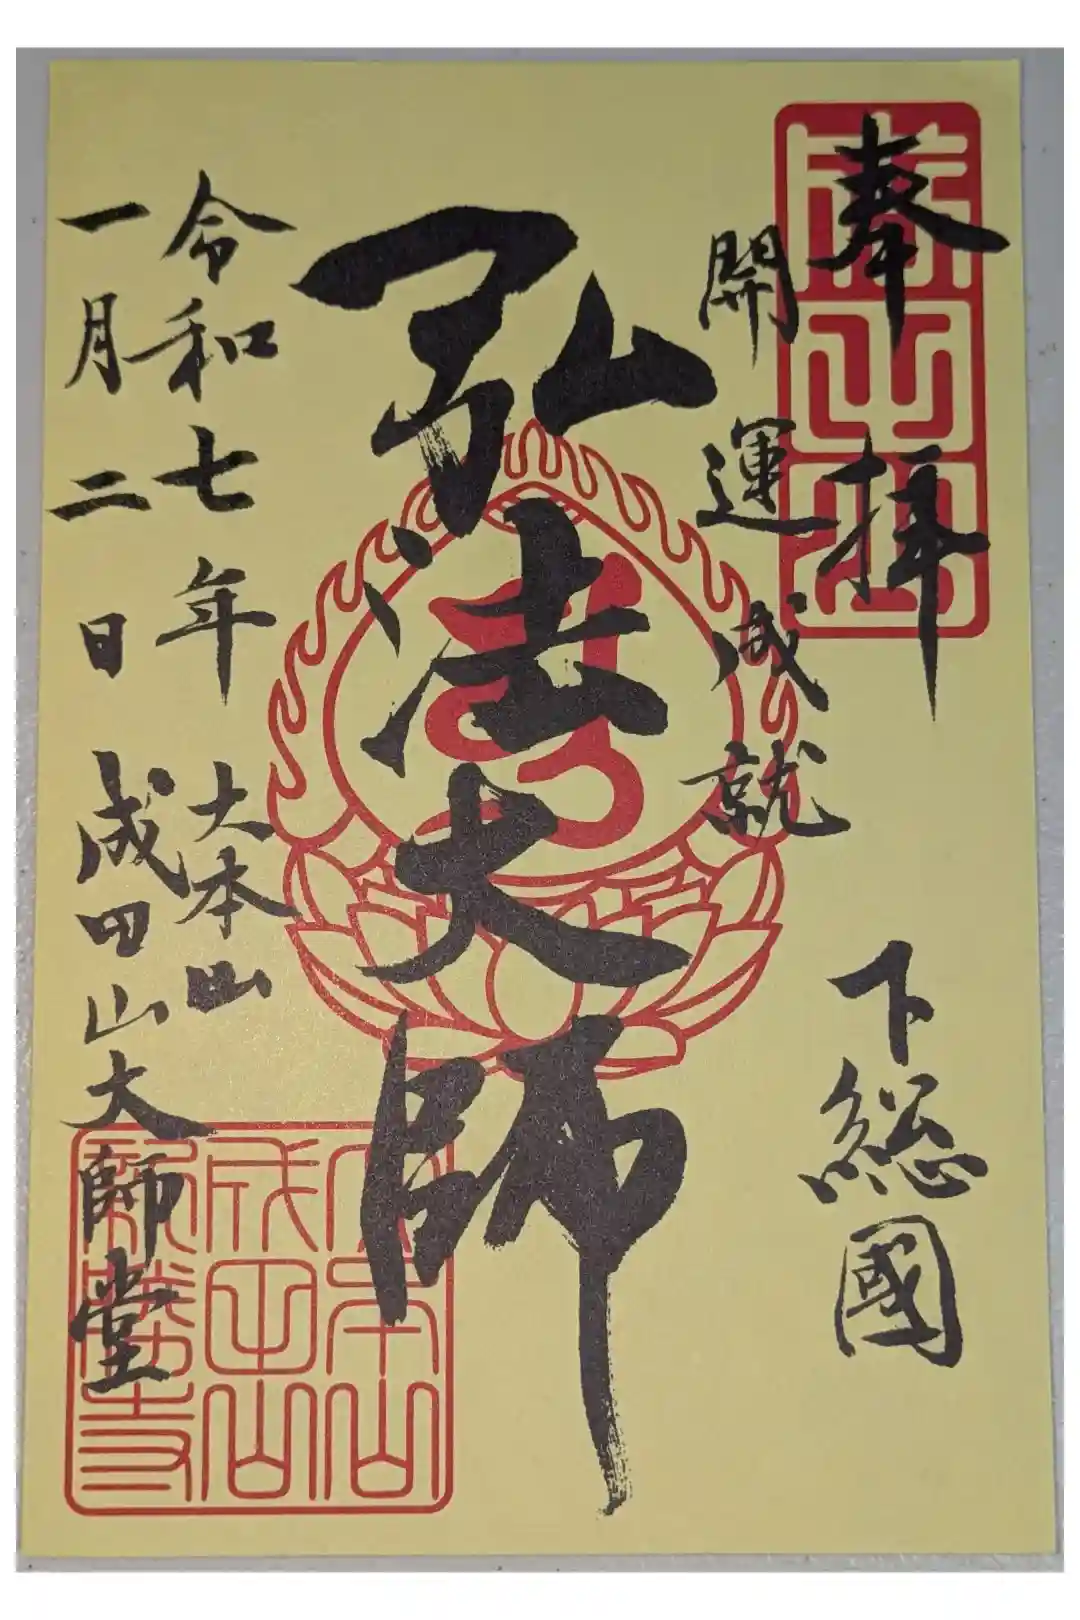 奉拝
下総國
開運成就
弘法大師
令和七年
一月二日
大本山
成田山大師堂
大本山
成田山
新勝寺